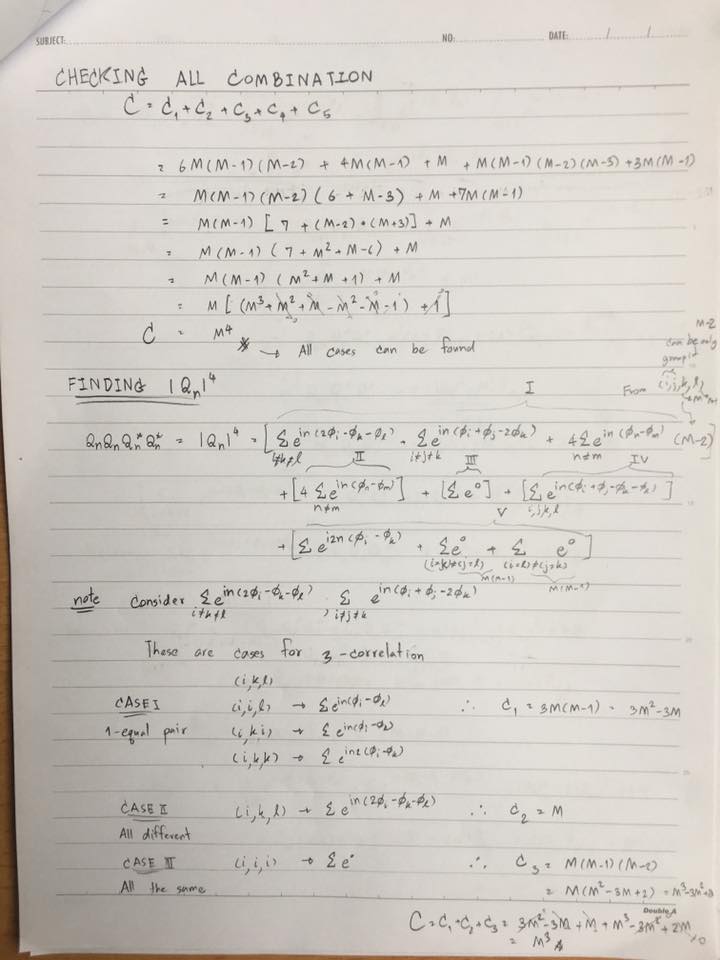 SUBJECT: NO: DATE: / /
CHECKING ALL COMBINATION
C = C₁ + C₂ + C₃ + C₄ + C₅
= 6M(M-1)(M-2) + 4M(M-1) + M + M(M-1)(M-2)(M-3) + 3M(M-1)
= M(M-1)(M-2)(6 + M-3) + M + 7M(M-1)
= M(M-1) [7 + (M-2)•(M+3)] + M
= M(M-1) (7 + M² + M - 6) + M
= M(M-1) (M² + M + 1) + M
= M [ (M³ + M² + M - M² - M - 1) + 1 ]
C = M⁴
→ All cases can be found
M-2
can be only
group it
From (i,j,k,l)
FINDING |Qₙ|⁴
I
QₙQₙQₙ*Qₙ* = |Qₙ|⁴ = [ Σ e^{in(2φᵢ-φₖ-φₗ)} + Σ e^{in(φᵢ+φⱼ-2φₖ)} + 4Σ e^{in(φₙ-φₘ)} (M-2) ]
i≠k≠l i≠j≠k n≠m
II III IV
+ [4 Σ e^{in(φₙ-φₘ)}] + [Σ e⁰] + [Σ e^{in(φᵢ+φⱼ-φₖ-φₗ)}]
n≠m i,j,k,l
V
+ [Σ e^{i2n(φᵢ-φₖ)} + Σ e⁰ + Σ e⁰]
(i=k)≠(j=l) (i=l)≠(j=k)
M(M-1) M(M-1)
note Consider Σ e^{in(2φᵢ-φₖ-φₗ)} , Σ e^{in(φᵢ+φⱼ-2φₖ)}
i≠k≠l i≠j≠k
These are cases for 3-correlation
(i,k,l)
CASE I (i,i,l) → Σ e^{in(φᵢ-φₗ)} ∴ C₁ = 3M(M-1) = 3M²-3M
1-equal pair (i,k,i) → Σ e^{in(φᵢ-φₖ)}
(i,k,k) → Σ e^{in2(φᵢ-φₖ)}
CASE II (i,k,l) → Σ e^{in(2φᵢ-φₖ-φₗ)} ∴ C₂ = M
All different
CASE III (i,i,i) → Σ e⁰ ∴ C₃ = M(M-1)(M-2)
All the same = M(M²-3M+2) = M³-3M²+2
Double A
C = C₁+C₂+C₃ = 3M²-3M + M + M³-3M²+2M
= M³